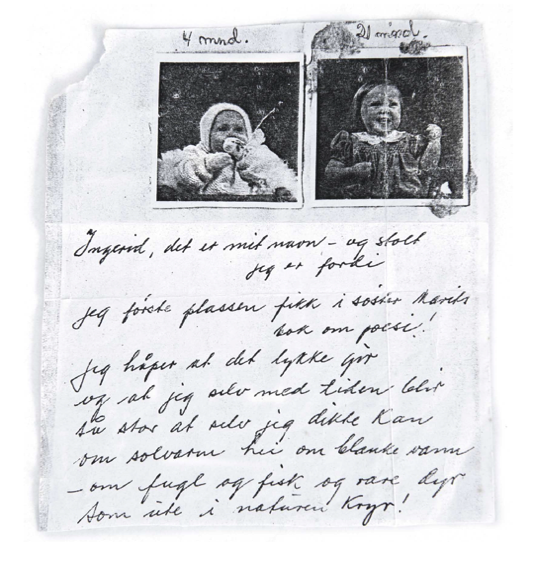 4 mnd.
21 mnd.
Ingerid, det er mit navn – og stolt
jeg er fordi
jeg første plassen fikk i søster Marits
bok om poesi!
Jeg håper at det lykke gir
og at jeg selv med tiden blir
så stor at selv jeg dikte kan
om solvarm hei om blanke vann
– om fugl og fisk og rare dyr
som ute i naturen kryr!